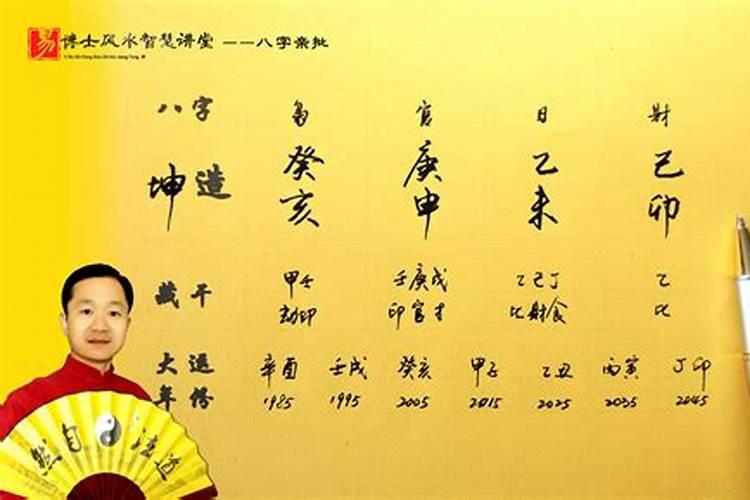 易 博士风水智慧讲堂 ——八字亲批
八字 枭 官 日 财
坤造 癸 庚 乙 己
亥 申 未 卯
藏干 甲壬 壬庚戊 乙己丁 乙
劫印 印官才 比财食 比
大运 辛酉 壬戌 癸亥 甲子 乙丑 丙寅 丁卯
年份 1985 1995 2005 2015 2025 2035 2045
然自法道